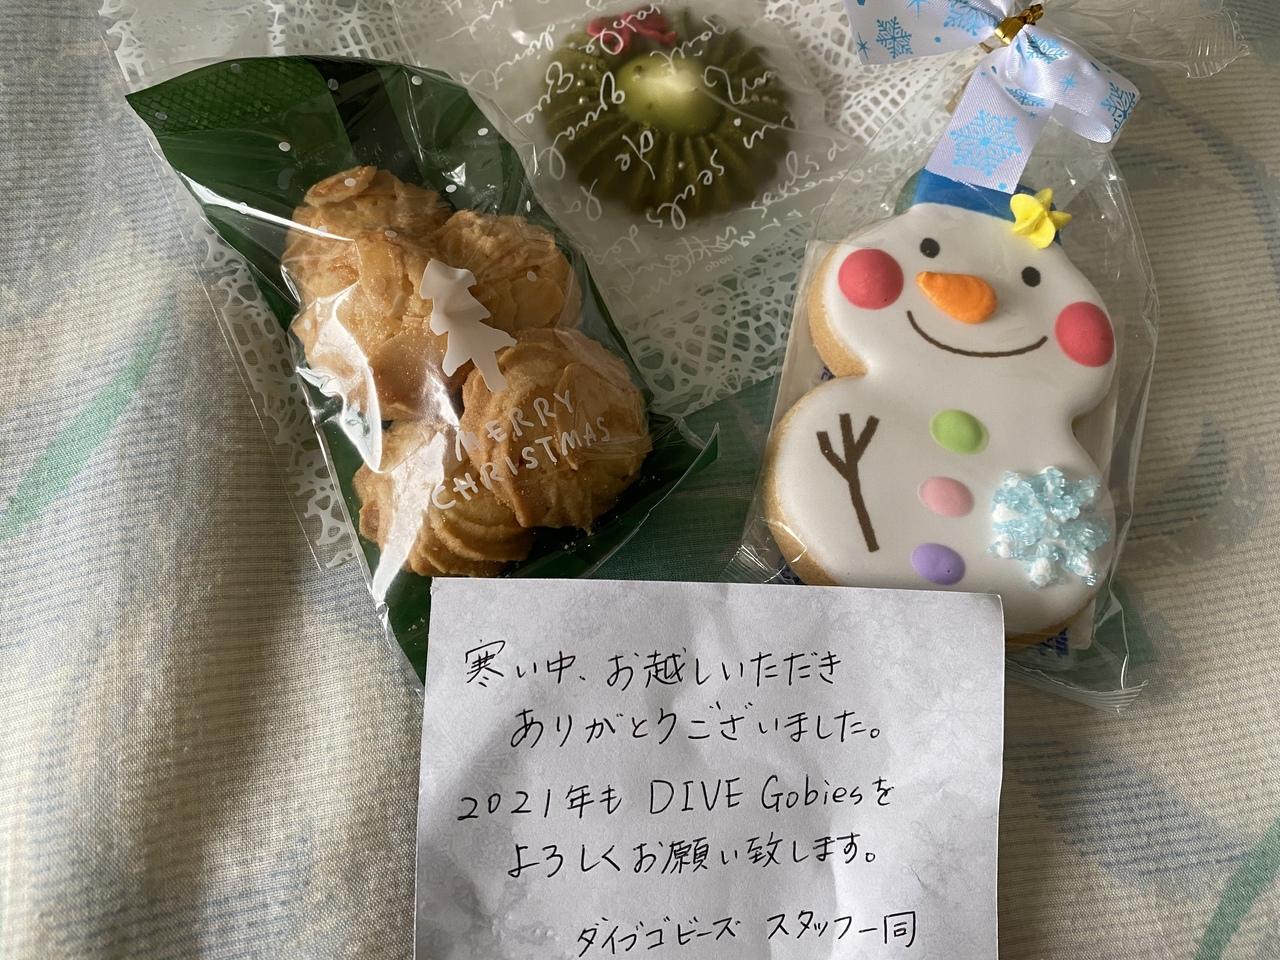 MERRY
CHRISTMAS
寒い中、お越しいただき
ありがとうございました。
2021年も DIVE Gobiesを
よろしくお願い致します。
ダイブゴビーズ スタッフ一同